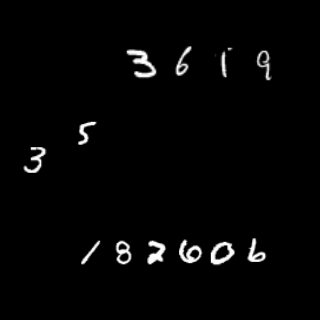 3619
5
3
182606